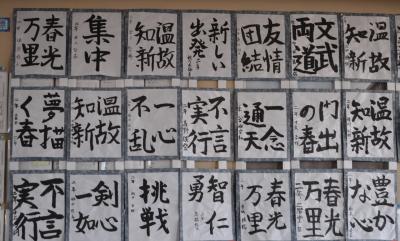 春光
万里
集中
温故
知新
新しい
出発
友情
団結
文武
両道
温故
知新
夢描
く春
温故
知新
一心
不乱
不言
実行
一念
通天
門出
の春
温故
知新
不言
実行
剣心
一如
挑戦
智仁
勇
春光
万里
春光
万里
豊か
な心